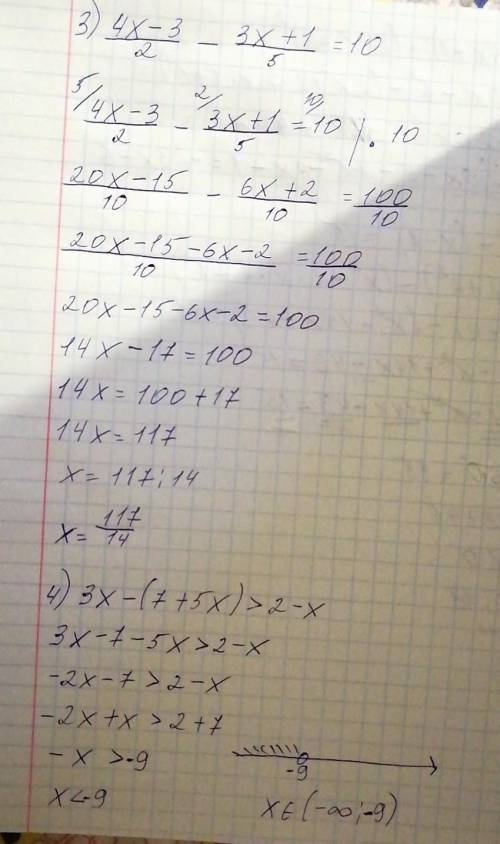 3) (4x-3)/2 - (3x+1)/5 = 10
5/ (4x-3)/2 - 2/ (3x+1)/5 = 10/ 10 | · 10
(20x-15)/10 - (6x+2)/10 = 100/10
(20x-15-6x-2)/10 = 100/10
20x-15-6x-2=100
14x-17=100
14x=100+17
14x=117
x=117:14
x=117/14
4) 3x-(7+5x)>2-x
3x-7-5x>2-x
-2x-7>2-x
-2x+x>2+7
-x>-9
-9
x<-9
x∈(-∞;-9)